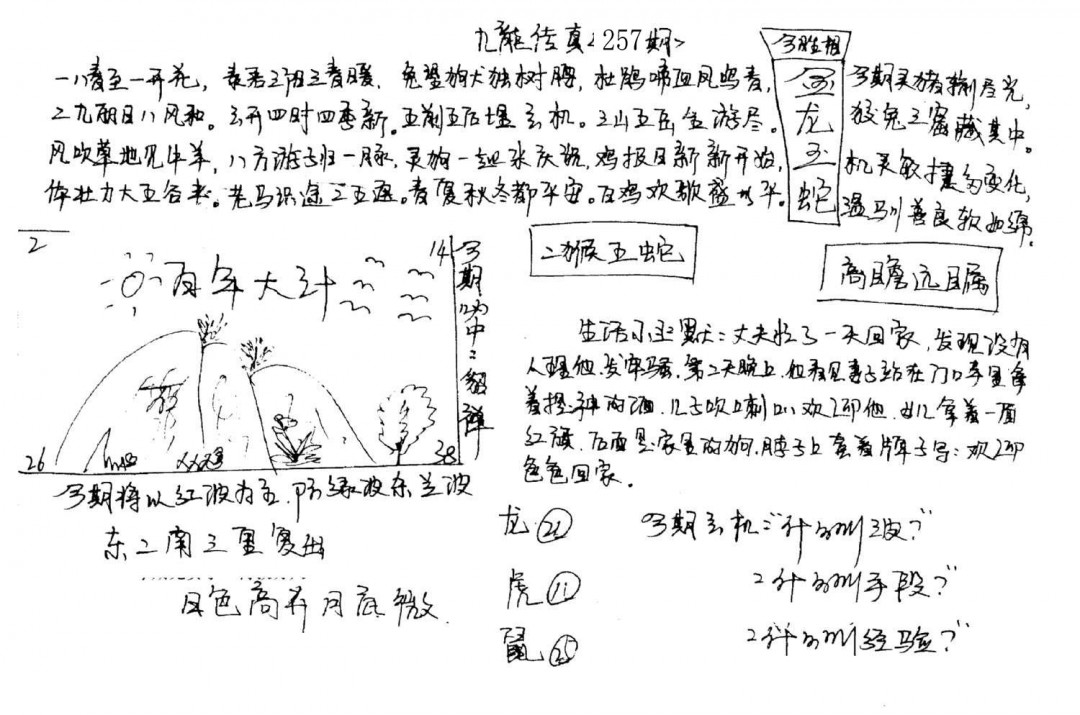 九龍传真<257期>
一八春至一开花，春君三阳三春暖，兔望狗犬独树腰，杜鹃啼血风鸣春，
二九丽日八风和。云开四时四季新。五前五后埋玄机。三山五岳全游尽。
风吹草地见牛羊，八方游子归一脉，灵狗一起来庆祝，鸡报日新新开始，
体壮力大五谷丰。老马识途二五返。春夏秋冬都平安。百鸡欢歌盛水平。
今期
金龙玉蛇
今期灵猪捌尽光，
狡兔三窟藏其中。
机灵敏捷多变化，
温驯善良软如绵。
二猴五蛇
高瞻远瞩
2
14
百年大计
26
38
今期
中
今期将以红波为主，防绿波东兰波
东二南三里复出
日色高升月底微
生活小幽默：丈夫忙了一天回家，发现没有
人理他，发牢骚，第二天晚上，他看见妻子站在门口手里拿
着提神的酒，儿子吹喇叭欢迎他，女儿拿着一面
红旗，后面是家里的狗，脖子上套着牌子写：欢迎
爸爸回家。
龙 22
虎 11
鼠 25
今期玄机：什么叫
2什么叫手段？
2什么叫经验？